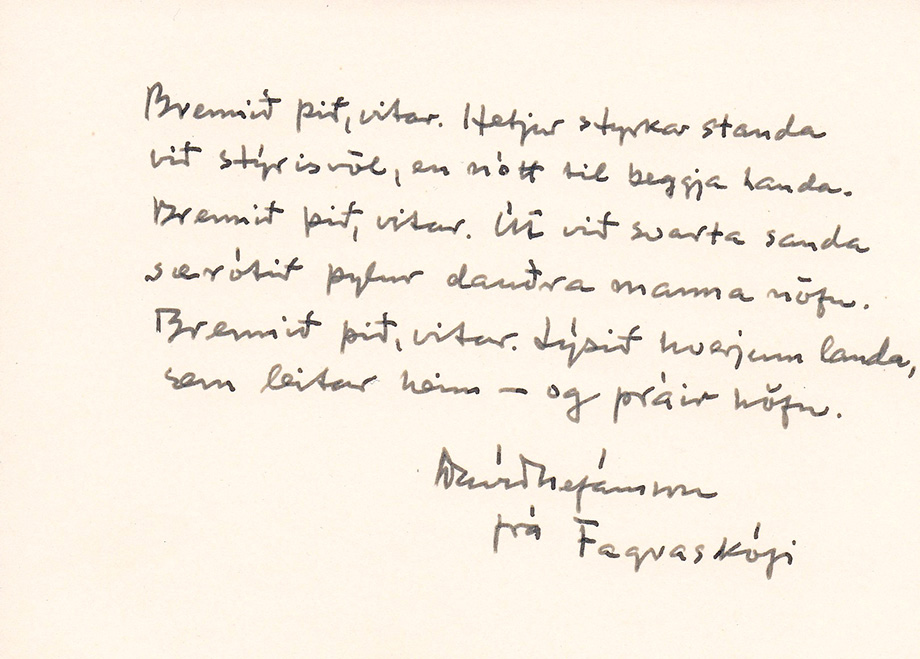 Brennið þið, vitar. Hetjur styrkar standa
við stýrisvöl, en nótt til beggja handa.
Brennið þið, vitar. Út við svarta sanda
særótið þylur dauðra manna nöfn.
Brennið þið, vitar. Lýsið hverjum landa,
sem leitar heim – og þráir höfn.
Davíð Stefánsson
frá Fagraskógi